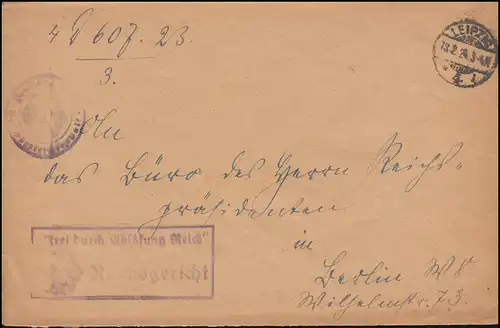 4 D 607. 23.
3.
LEIPZIG
13.2.24.3-4N.
An
das Büro des Herrn Reichs-
präsidenten
in
Berlin W8
Wilhelmstr. 73.
"Frei durch Ablösung Reich"
Reichsgericht